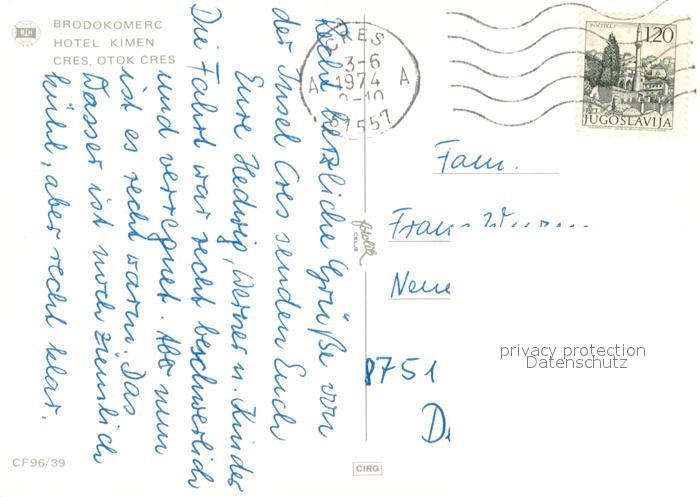 BRODOKOMERC
HOTEL KIMEN
CRES, OTOK CRES
Recht herzliche Grüße von
der Insel Cres senden Euch
Eure Hedwig, Werner u. Kinder
Die Fahrt war recht beschwerlich
und verregnet. Aber nun
ist es recht warm. Das
Wasser ist noch ziemlich
kühl, aber recht klar.
CF96/39
fotolik
CELJE
CIRG
CRES
3-6
A 1974 A
51557
POČITELJ
1.20
JUGOSLAVIJA
Fam.
Franz
8751
privacy protection
Datenschutz